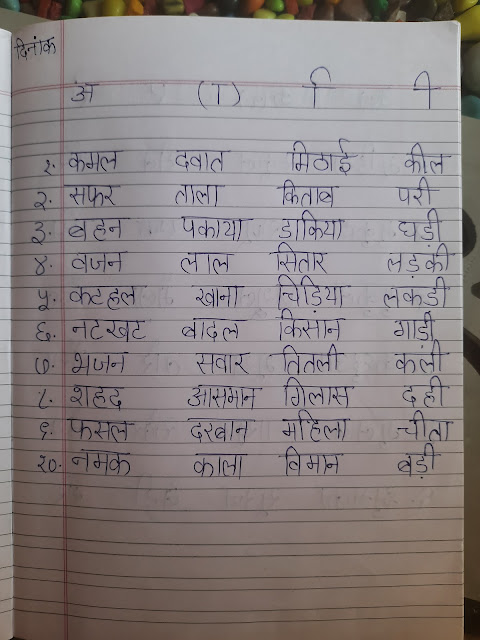 दिनांक
अ (ा) ि ी
१. कमल दवात मिठाई कील
२. सफर ताला किताब परी
३. बहन पकाया डाकिया घड़ी
४. वजन लाल सितार लड़की
५. कटहल खाना चिड़िया लकड़ी
६. नटखट बादल किसान गाड़ी
७. भजन सवार तितली कली
८. शहद आसमान गिलास दही
९. फसल दरबान महिला चीता
१०. नमक काला विमान बड़ी